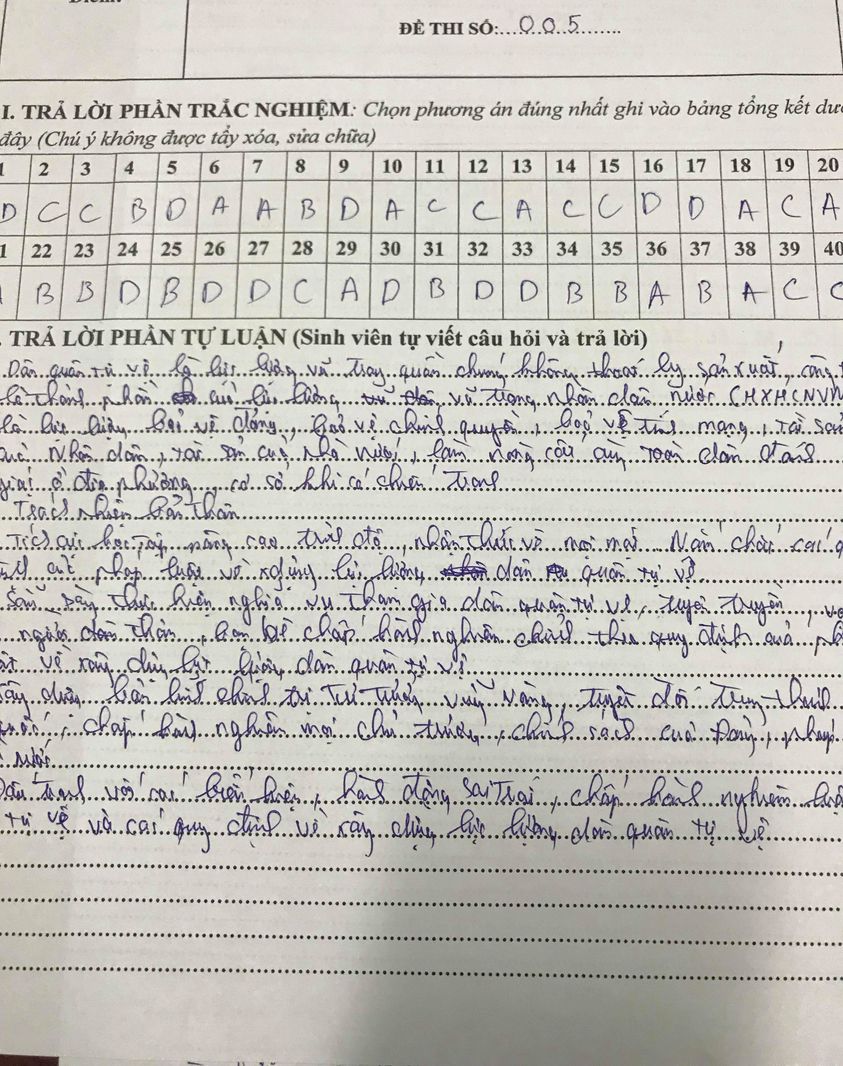 ĐỀ THI SỐ:...005.......
I. TRẢ LỜI PHẦN TRẮC NGHIỆM: Chọn phương án đúng nhất ghi vào bảng tổng kết dướ
đây (Chú ý không được tẩy xóa, sửa chữa)
1 2 3 4 5 6 7 8 9 10 11 12 13 14 15 16 17 18 19 20
D C C B D A A B D A C C A C C D D A C A
1 22 23 24 25 26 27 28 29 30 31 32 33 34 35 36 37 38 39 40
B B D B D D C A D B D D B B A B A C C
. TRẢ LỜI PHẦN TỰ LUẬN (Sinh viên tự viết câu hỏi và trả lời)
Dân quân tự vệ là lực lượng vũ trang quần chúng không thoát ly sản xuất, công t
là thành phần của lực lượng vũ trang nhân dân nước CHXHCNVN
là lực lượng bảo vệ Đảng, bảo vệ chính quyền, bảo vệ tính mạng, tài sản
của Nhân dân, tài sản của nhà nước, làm nòng cốt cùng toàn dân đánh
giặc ở địa phương, cơ sở khi có chiến tranh
Trách nhiệm bản thân
Tích cực học tập nâng cao trình độ, nhận thức về mọi mặt. Nắm chắc các q
pháp luật về xây dựng lực lượng dân quân tự vệ
Sẵn sàng thực hiện nghĩa vụ tham gia dân quân tự vệ, tuyên truyền, v
người thân, bạn bè chấp hành nghiêm chỉnh theo quy định của ph
về xây dựng lực lượng dân quân tự vệ
bản lĩnh chính trị tư tưởng vững vàng, tuyệt đối trung thành
chấp hành nghiêm mọi chủ trương, chính sách của Đảng, pháp
nước
Đấu tranh với các biểu hiện, hành động sai trái, chấp hành nghiêm luậ
tự vệ và các quy định về xây dựng lực lượng dân quân tự vệ